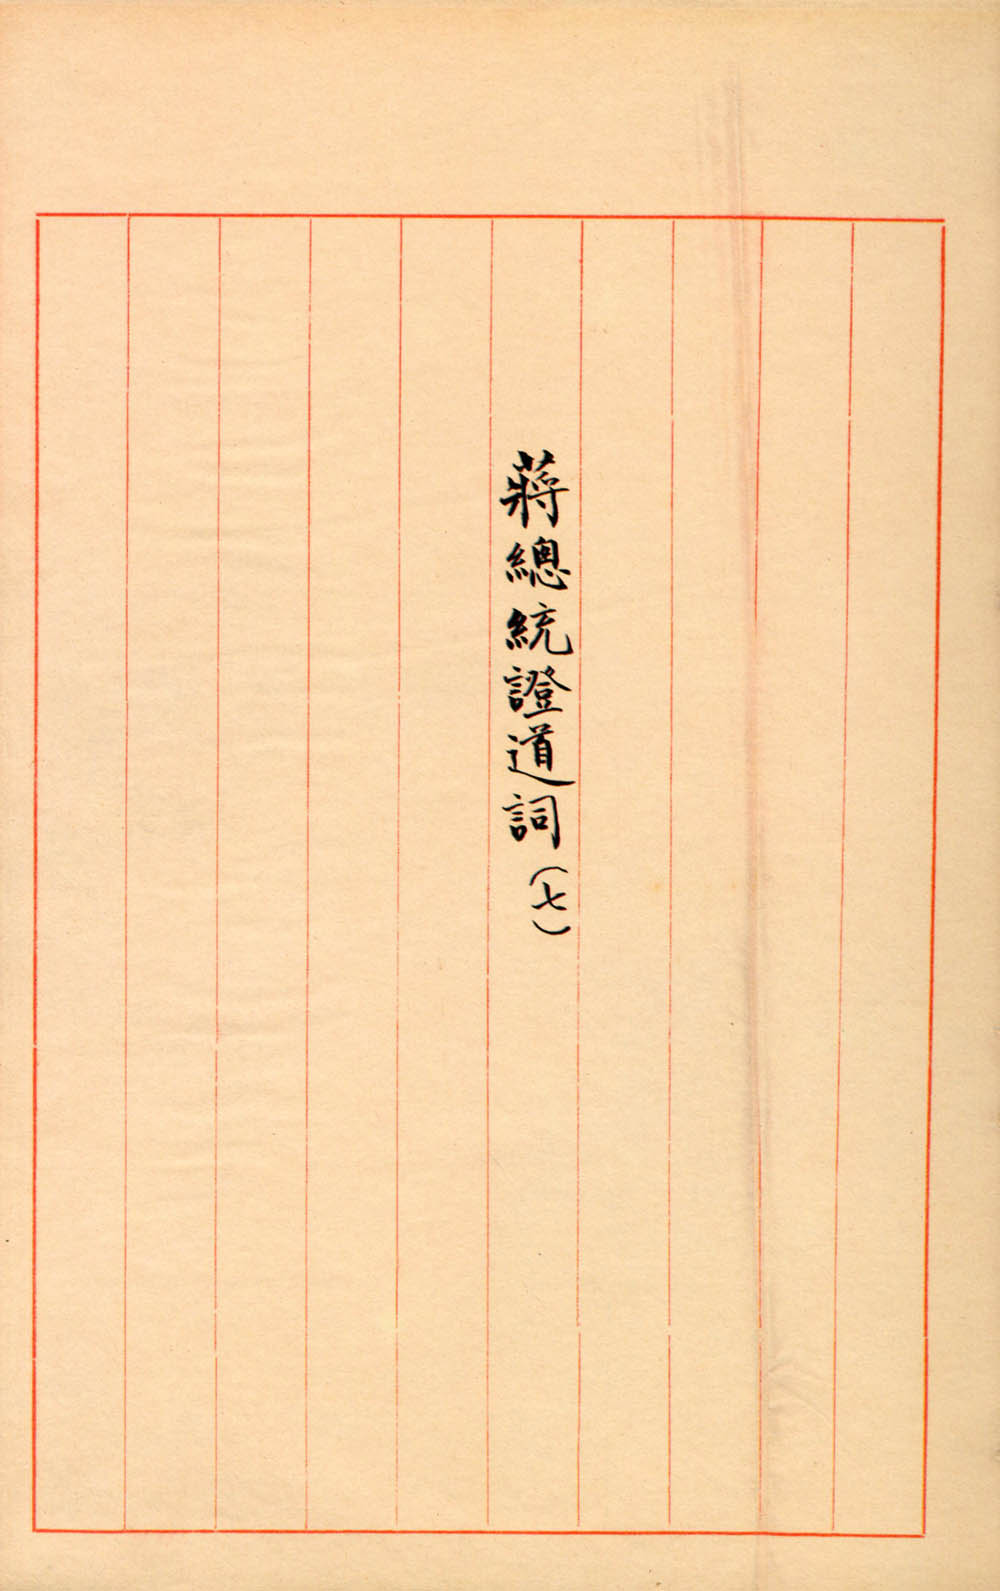 蔣總統證道詞(七)